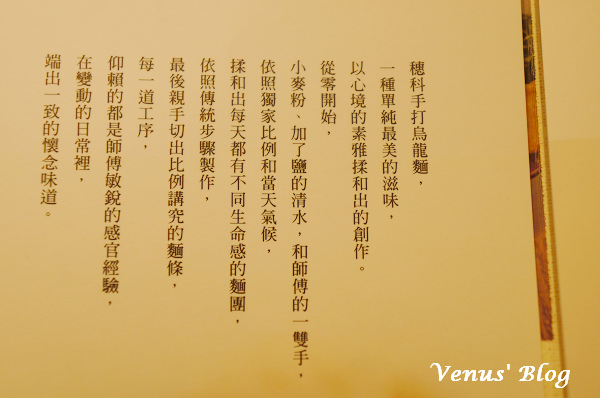 穗科手打烏龍麵，
一種單純最美的滋味，
以心境的素雅揉和出的創作。
從零開始，
小麥粉、加了鹽的清水，和師傅的一雙手，
依照獨家比例和當天氣候，
揉和出每天都有不同生命感的麵團，
依照傳統步驟製作，
最後親手切出比例講究的麵條，
每一道工序，
仰賴的都是師傅敏銳的感官經驗，
在變動的日常裡，
端出一致的懷念味道。
Venus' Blog